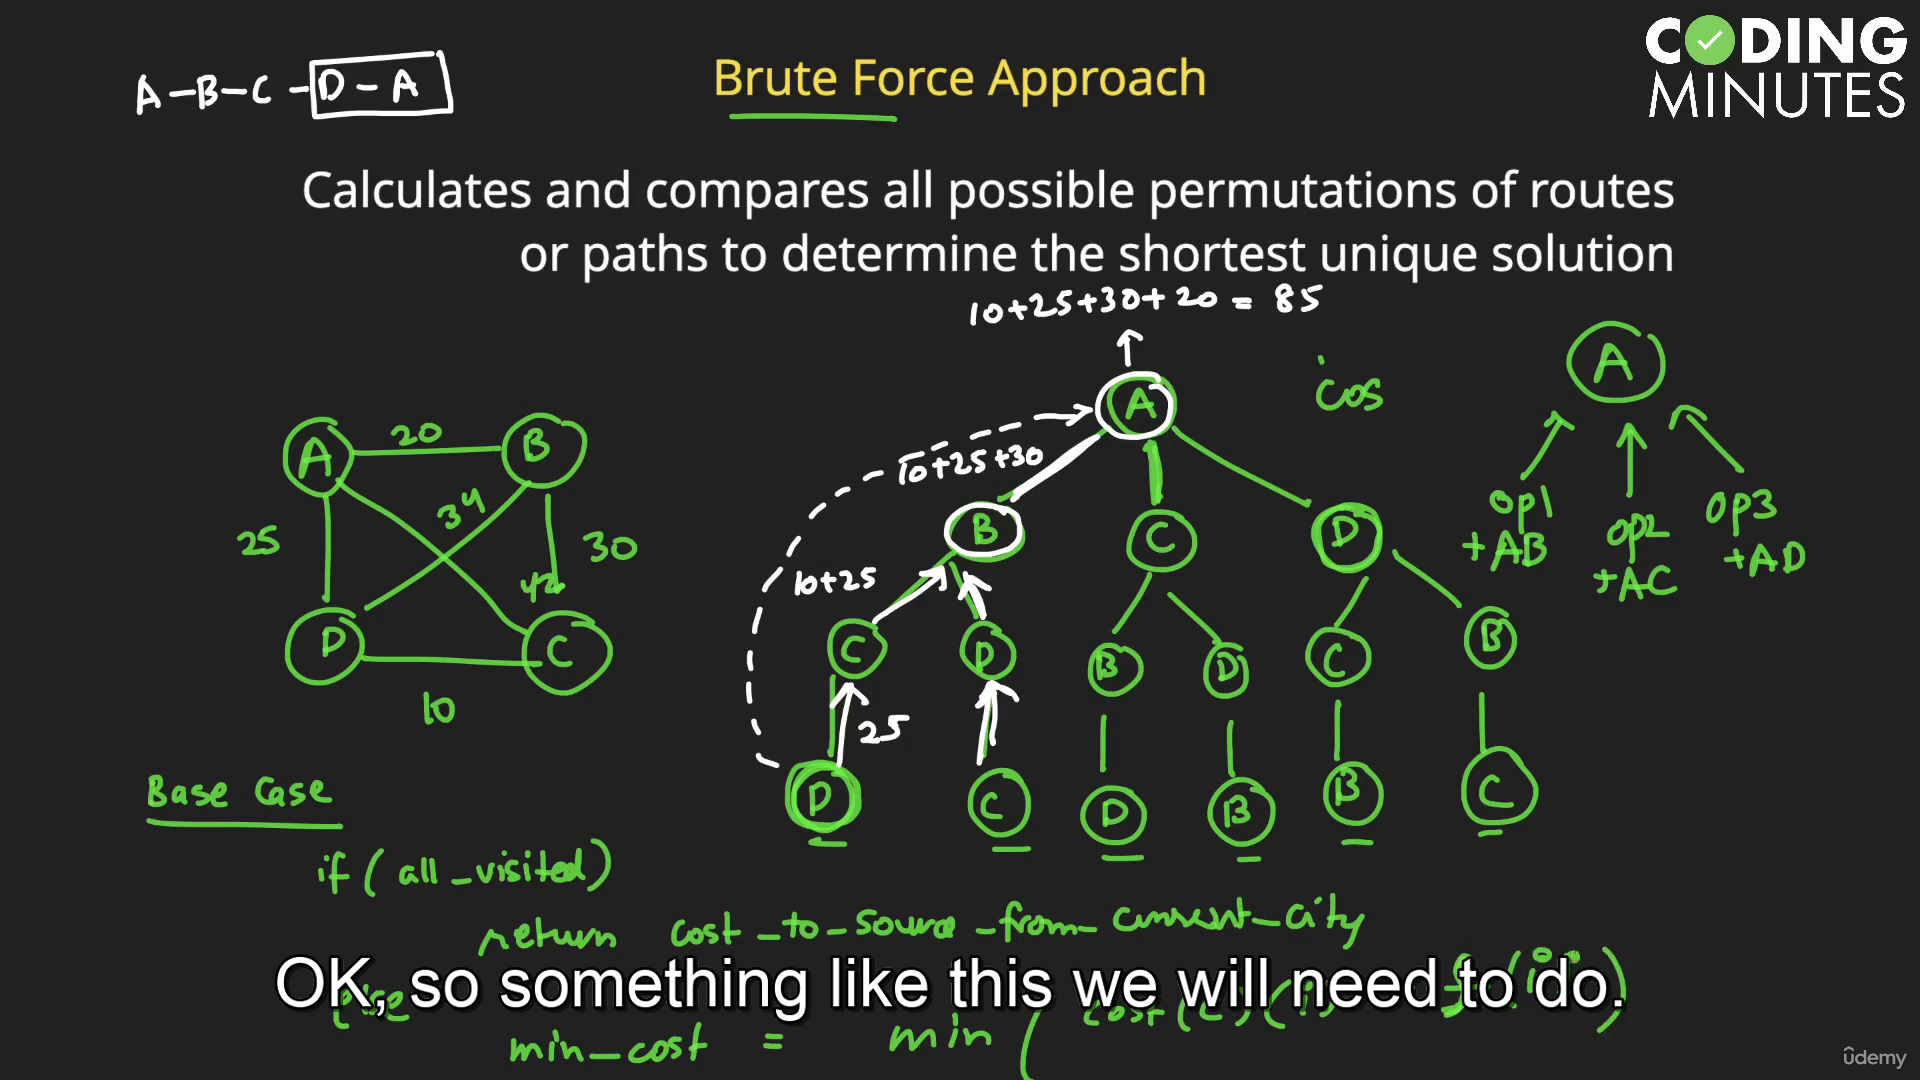 A-B-C-D-A
Brute Force Approach
CODING
MINUTES
Calculates and compares all possible permutations of routes
or paths to determine the shortest unique solution
10+25+30+20 = 85
A
cos
A
A 20 B
25
34
30
42
D
C
10
10+25+30
B
C
D
op1
+AB
op2
+AC
op3
+AD
10+25
C
D
B
D
C
B
25
D
C
D
B
B
C
Base Case
if ( all_visited)
return cost_to_source_from_current_city
else
OK, so something like this we will need to do.
min_cost = min (
udemy